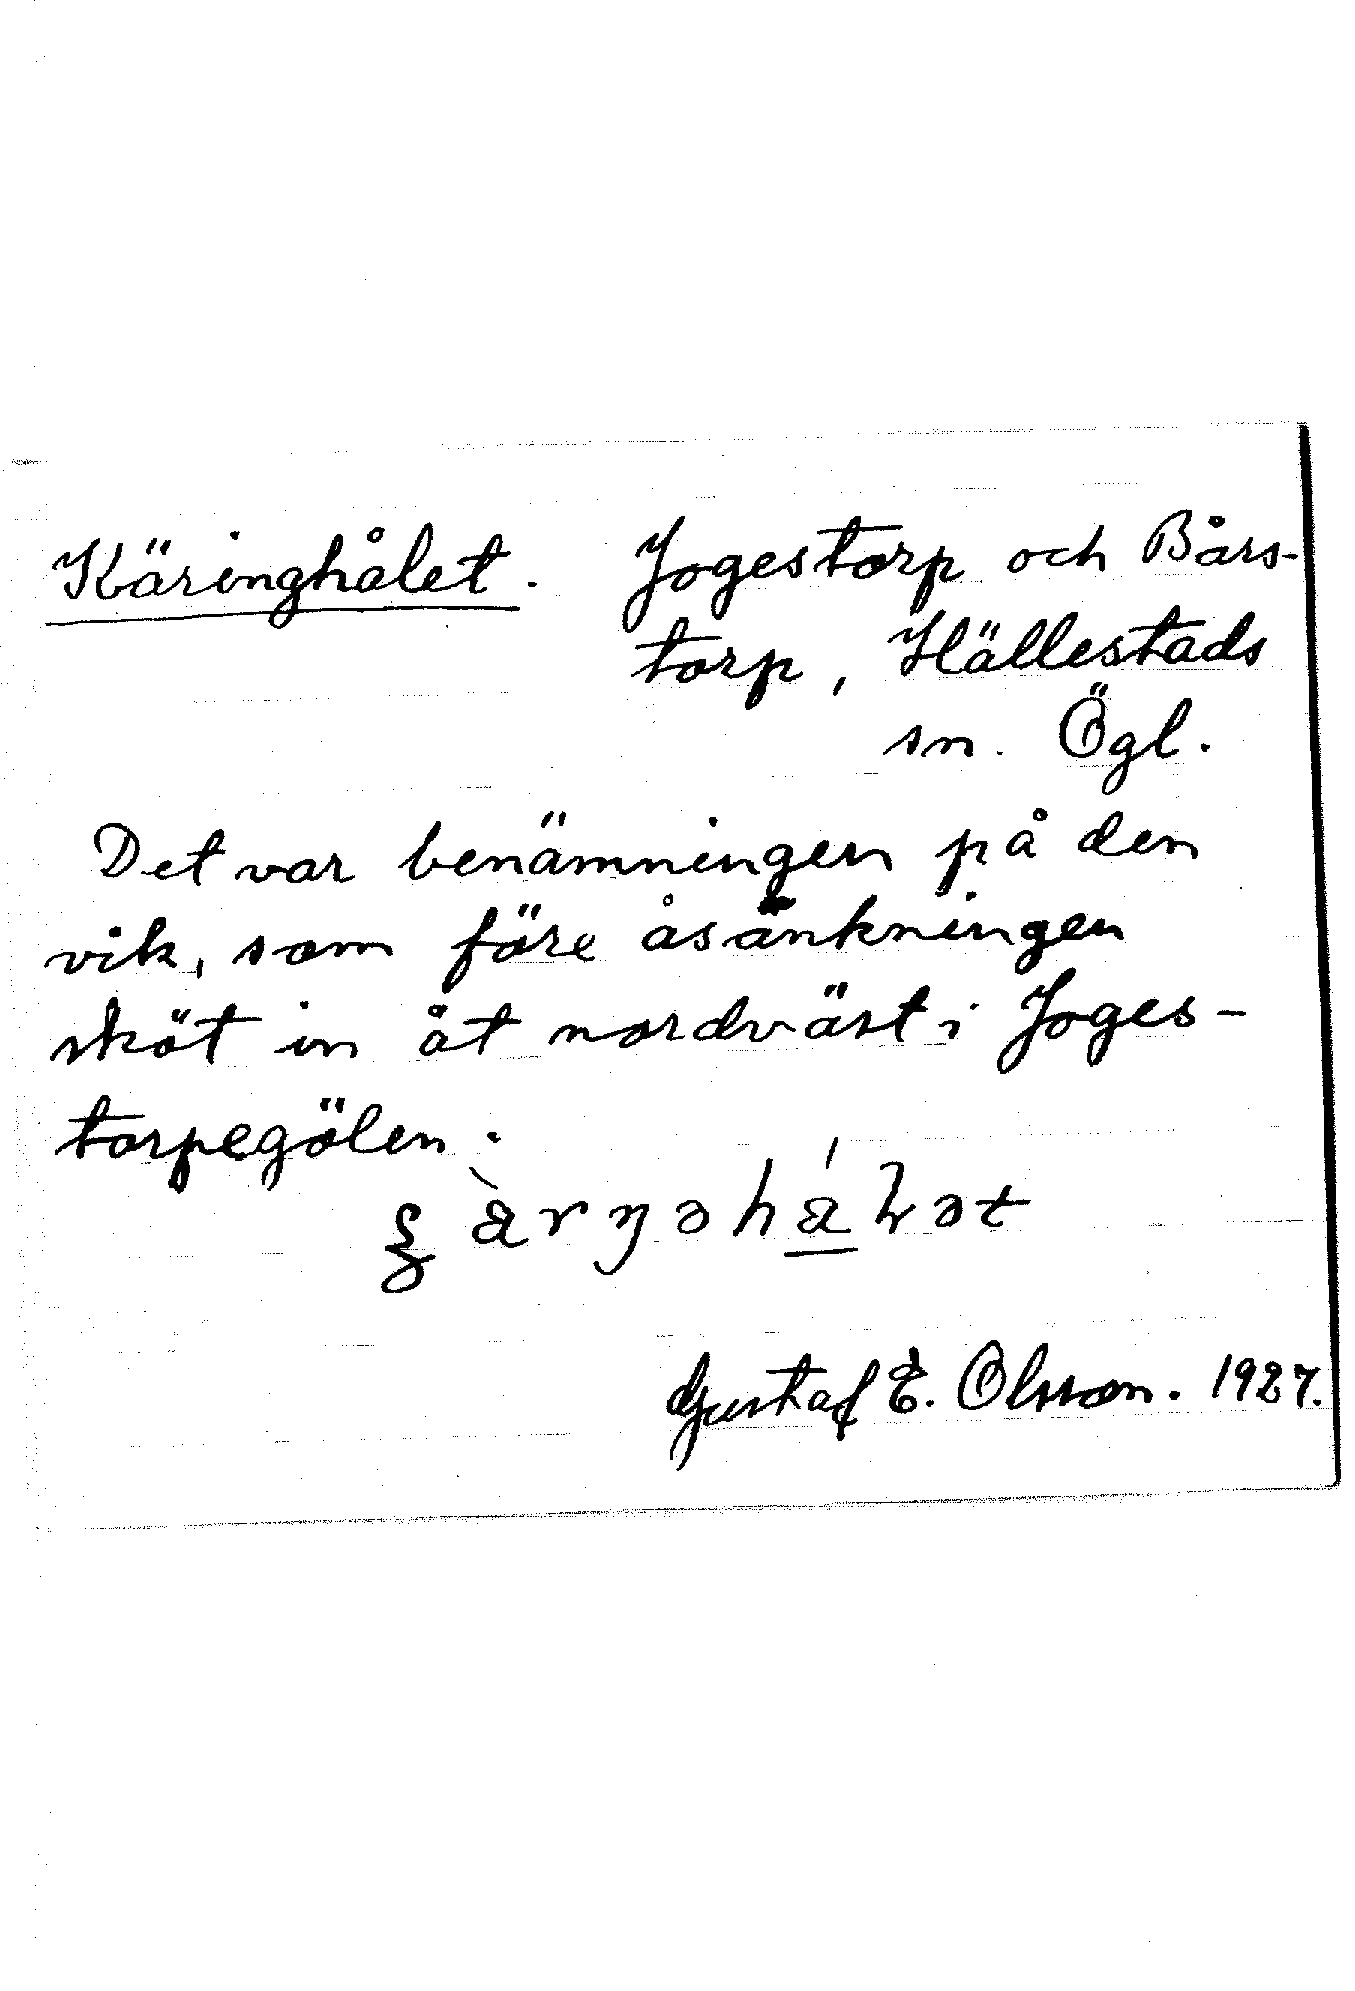 Käringhålet. Jogestorp och Bårs-
torp, Hällestads
sn. Ögl.
Det var benämningen på den
vik, som före åsänkningen
sköt in åt nordväst i Joges-
torpegölen.
Gustaf E. Olsson. 1927.